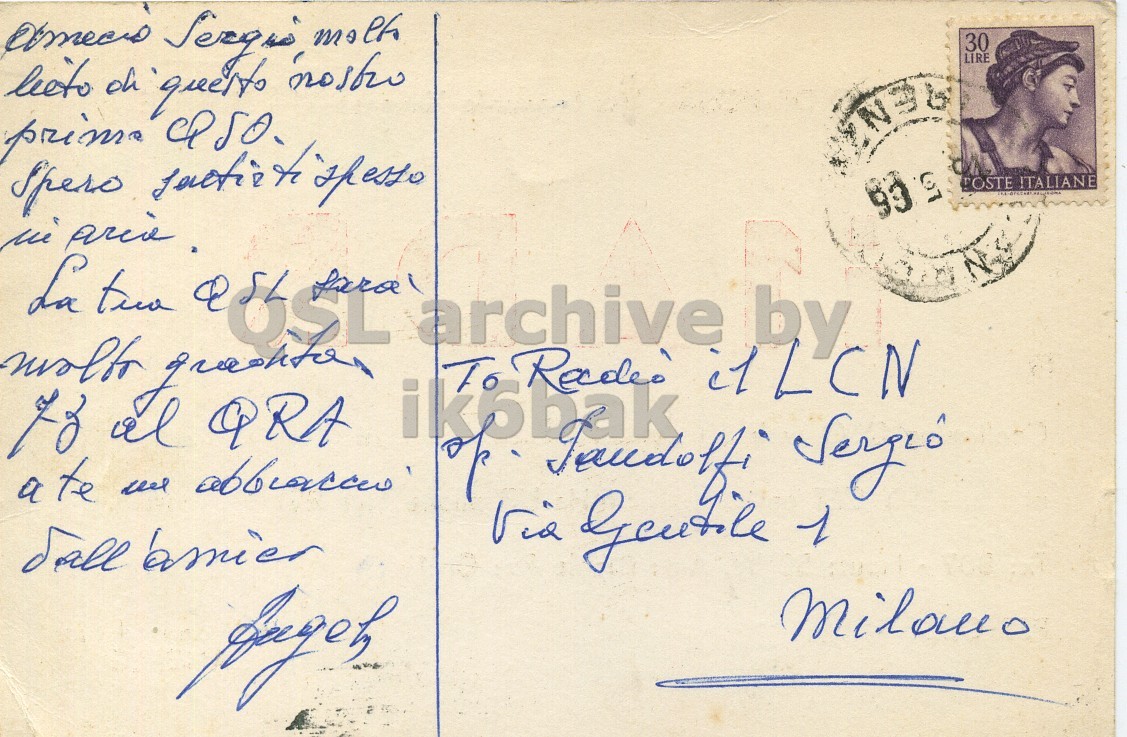 Amico Sergio molto
lieto di questo nostro
primo QSO.
Spero sentirti spesso
in aria.
La tua QSL sarà
molto gradita.
73 al QRA
a te un abbraccio
dall'amico
30
LIRE
POSTE ITALIANE
FIRENZE
QSL archive by
ik6bak
To Radio i1LCN
Op. Pandolfi Sergio
Via Gentile 1
Milano